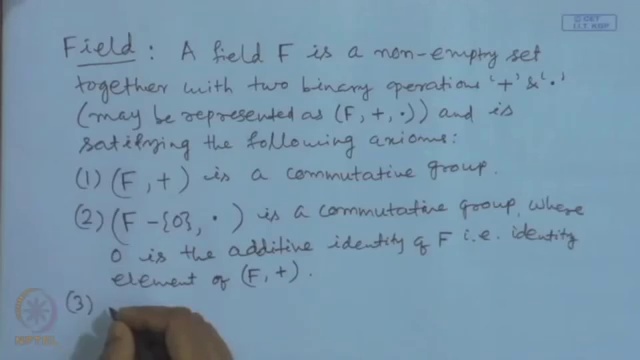 © CET
I.I.T. KGP
Field : A field F is a non-empty set
together with two binary operations '+' & '.'
(may be represented as (F, +, .)) and is
satisfying the following axioms:
(1) (F, +) is a commutative group.
(2) (F - {0}, .) is a commutative group, where
0 is the additive identity of F i.e. identity
element of (F, +).
(3)